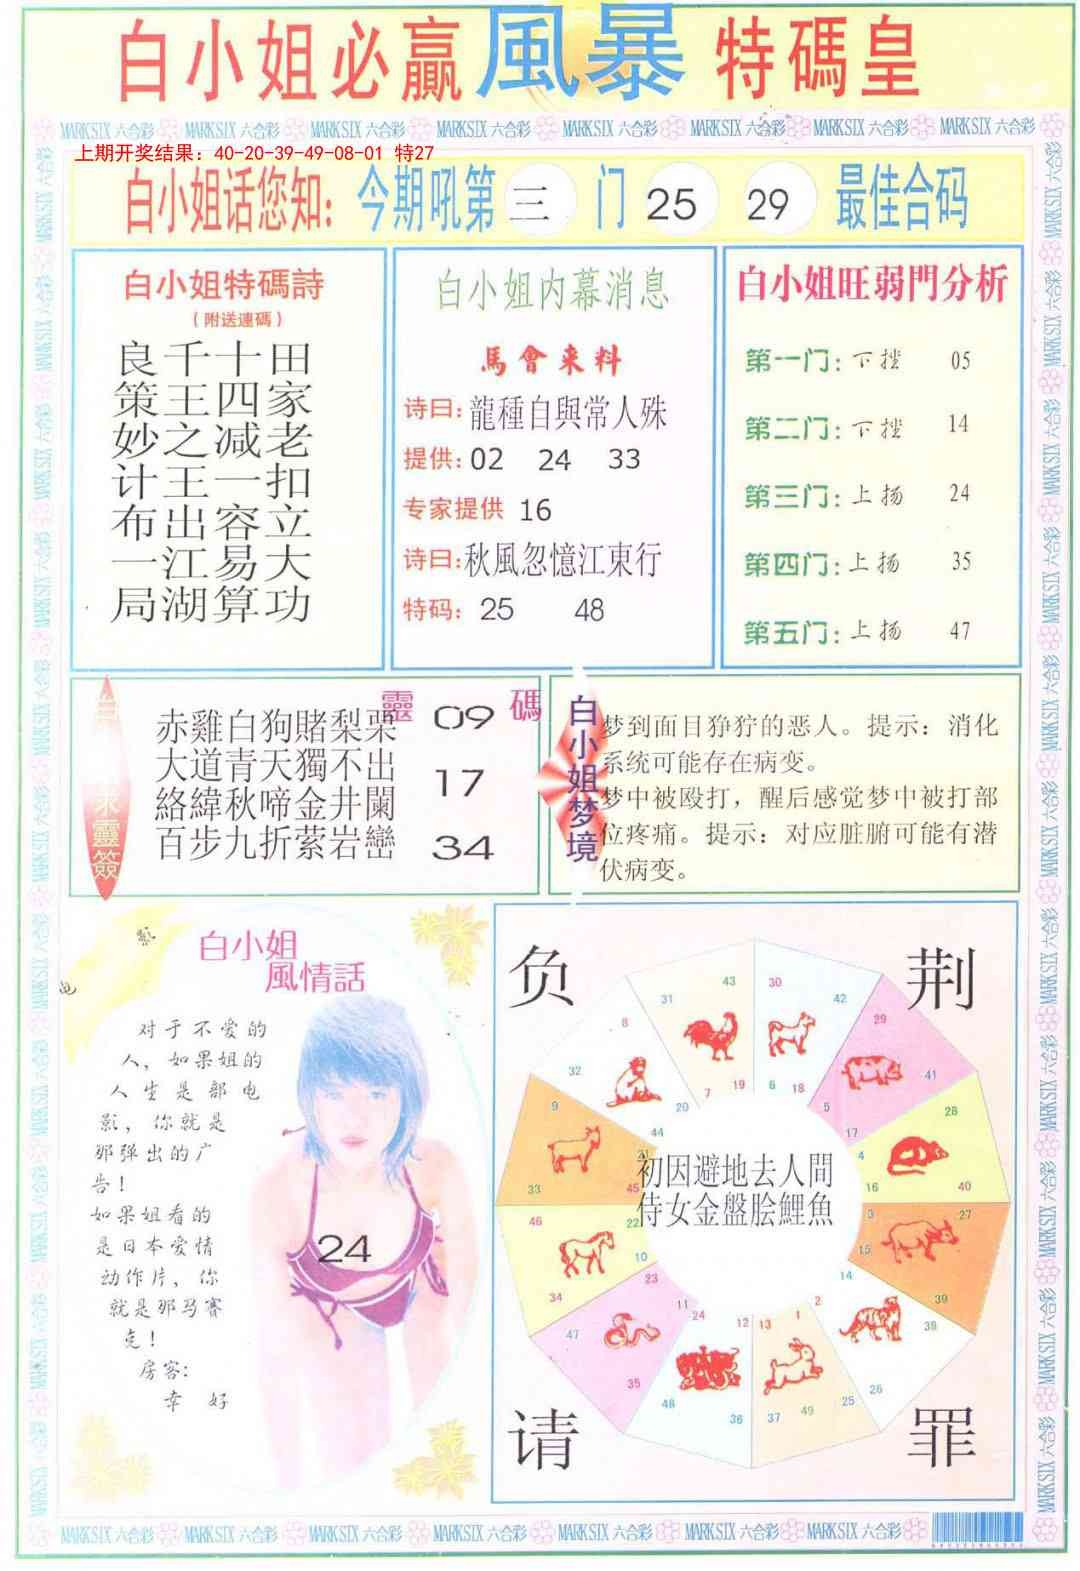 白小姐必赢風暴特碼皇
MARK SIX 六合彩 MARK SIX 六合彩 MARK SIX 六合彩 MARK SIX 六合彩 MARK SIX 六合彩 MARK SIX 六合彩 MARK SIX 六合彩 MARK SIX 六合彩
上期开奖结果：40-20-39-49-08-01 特27
白小姐话您知：今期吼第 三 门 25 29 最佳合码
白小姐特碼詩
（附送連碼）
良千十田
策王四家
妙之减老
计王一扣
布出容立
一江易大
局湖算功
白小姐内幕消息
馬會来料
诗曰：龍種自與常人殊
提供：02 24 33
专家提供 16
诗曰：秋風忽憶江東行
特码：25 48
白小姐旺弱門分析
第一门：下挫 05
第二门：下挫 14
第三门：上扬 24
第四门：上扬 35
第五门：上扬 47
求靈簽
赤雞白狗賭梨栗
大道青天獨不出
絡緯秋啼金井闌
百步九折萦岩巒
靈 碼
09
17
34
白小姐梦境
梦到面目狰狞的恶人。提示：消化
系统可能存在病变。
梦中被殴打，醒后感觉梦中被打部
位疼痛。提示：对应脏腑可能有潜
伏病变。
白小姐
風情話
对于不爱的
人，如果姐的
人生是部电
影，你就是
那弹出的广
告！
如果姐看的
是日本爱情
动作片，你
就是那马赛
克！
房客：
幸 好
24
负 荆
43 30
31 42
8 29
32 41
7 19 6 18
20 5
9 28
44 17
4
33 45 16 40
初因避地去人間
侍女金盤脍鯉魚
46 22 3 27
10 15
34 23 14 39
47 11 24 12 13 1 2 38
35 26
48 36 37 49 25
请 罪
MARK SIX 六合彩 MARK SIX 六合彩 MARK SIX 六合彩 MARK SIX 六合彩 MARK SIX 六合彩 MARK SIX 六合彩 MARK SIX 六合彩